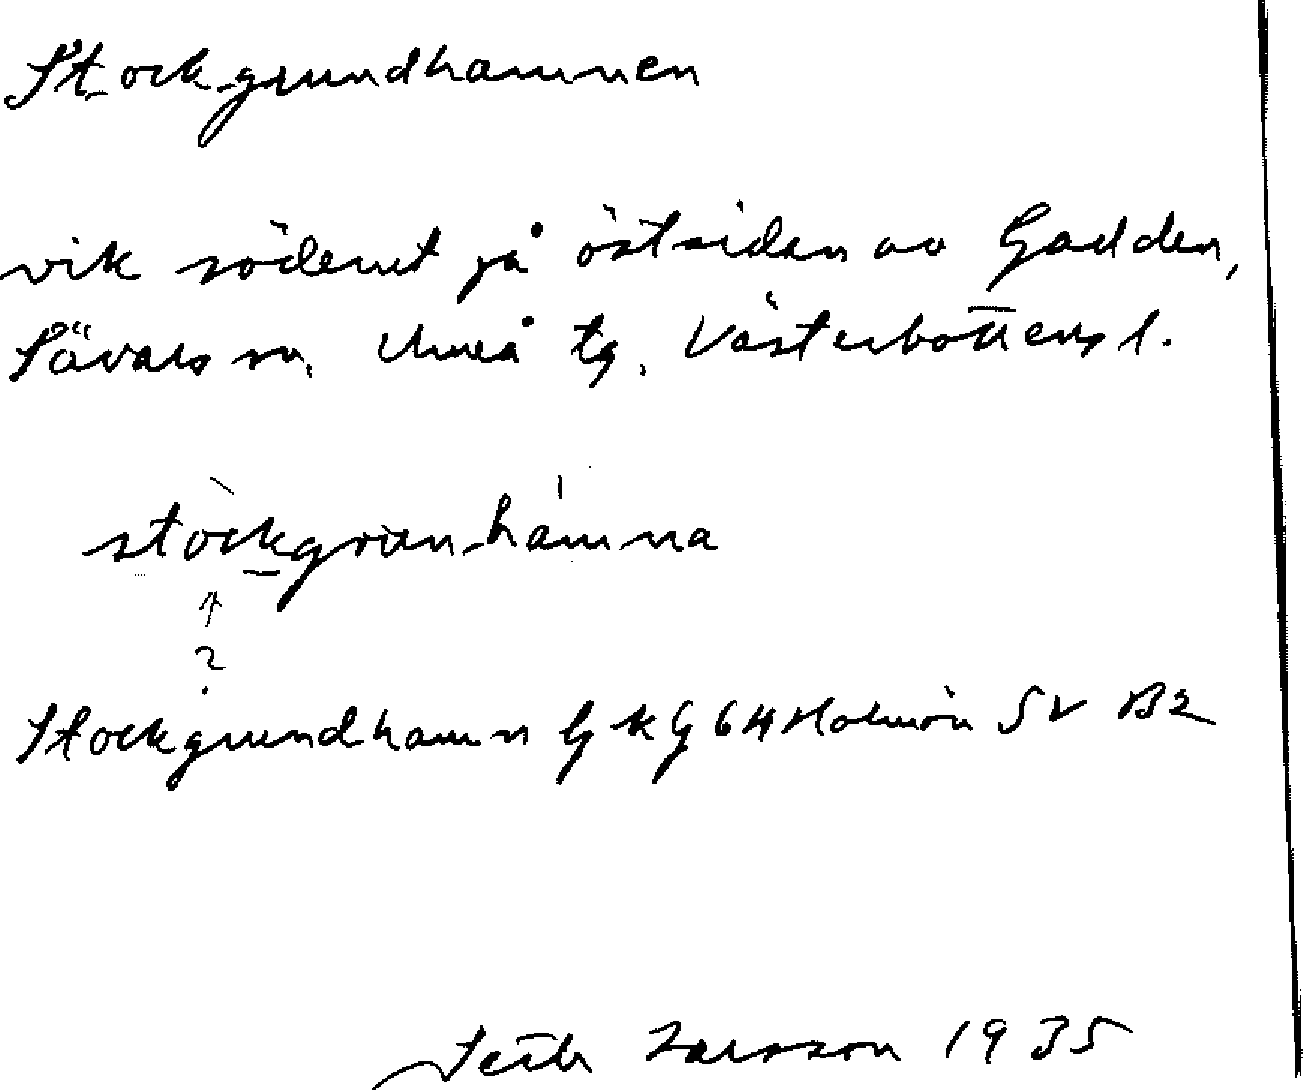 Stockgrundhamnen
vik söderut på östsidan av Gadden,
Sävars sn, Umeå tg, Västerbottens l.
stòckgrùn-hámna
↑
?
Stockgrundhamn GkG 64 Holmön SV B2
Larsson 1935